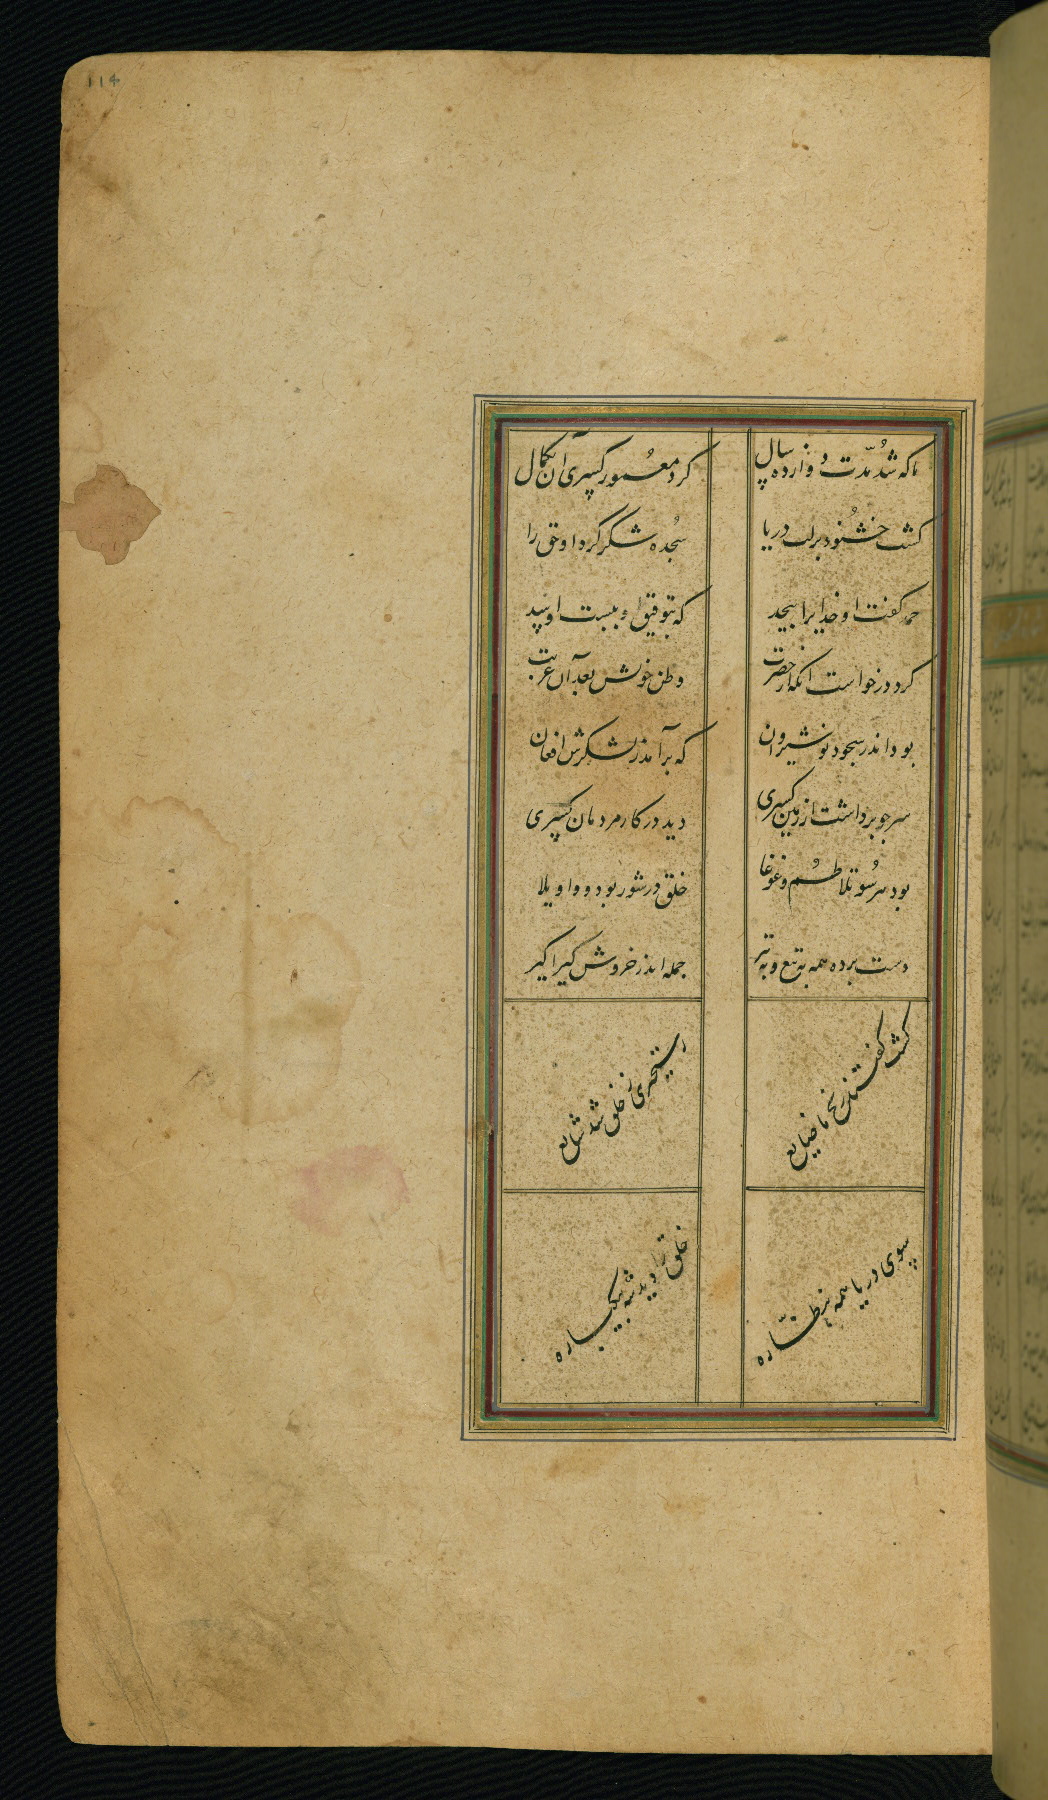 114
تا که شد مدت دوازده سال
کرد معمور کسری آن بکمال
گشت خشنود بر لب دریا
سجده شکر کرد او حق را
حمد گفت او خدایرا بیحد
که بتوفیق او ببست او سد
کرد درخواست آنکه از حضرت
وطن خوش بعد آن غربت
بود اندر سجود نوشیروان
که برآمد ز لشکرش افغان
سر چو برداشت از زمین کسری
دید در کار مردمان کسری
بود هر سو تلاطم و غوغا
خلق در شور بود و واویلا
دست برده همه به تیغ و به تیر
جمله اندر خروش گیراگیر
گشت گفتند رنج ما ضایع
رستخیزی ز خلق شد شایع
سوی دریا همه بنظاره
خلق را دید شه بیکباره